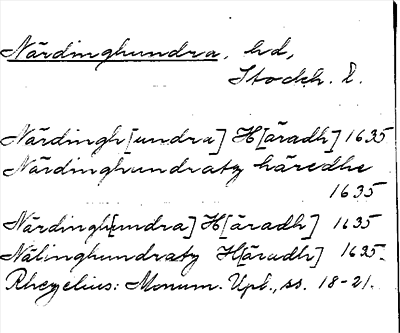 Närdinghundra, hd,
Stockh. l.
Närdingh[undra] H[äradh] 1635
Närdinghundratz häredhe
1635
Närdingh[undra] H[äradh] 1635
Nälinghundratz H[äradh] 1635.
Rhezelius: Monum. Upl., ss. 18-21.